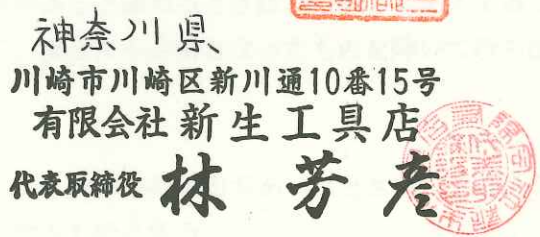 神奈川県
川崎市川崎区新川通10番15号
有限会社新生工具店
代表取締役 林 芳彦